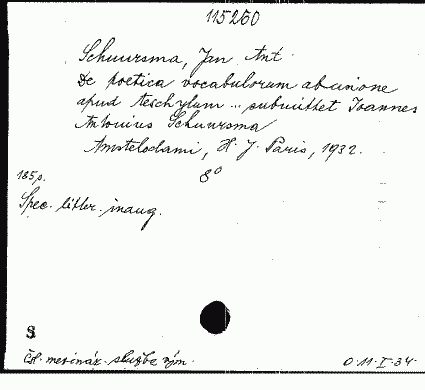 115260
Schuursma, Jan Ant
De poetica vocabulorum abusione
apud Aeschylum ... submittet Ioannes
Antonius Schuursma
Amstelodami, H. J. Paris, 1932.
185 s. 8°
Spec. litter. inaug.
S
Čsl. mezinár. služba výn. O-11-I-34